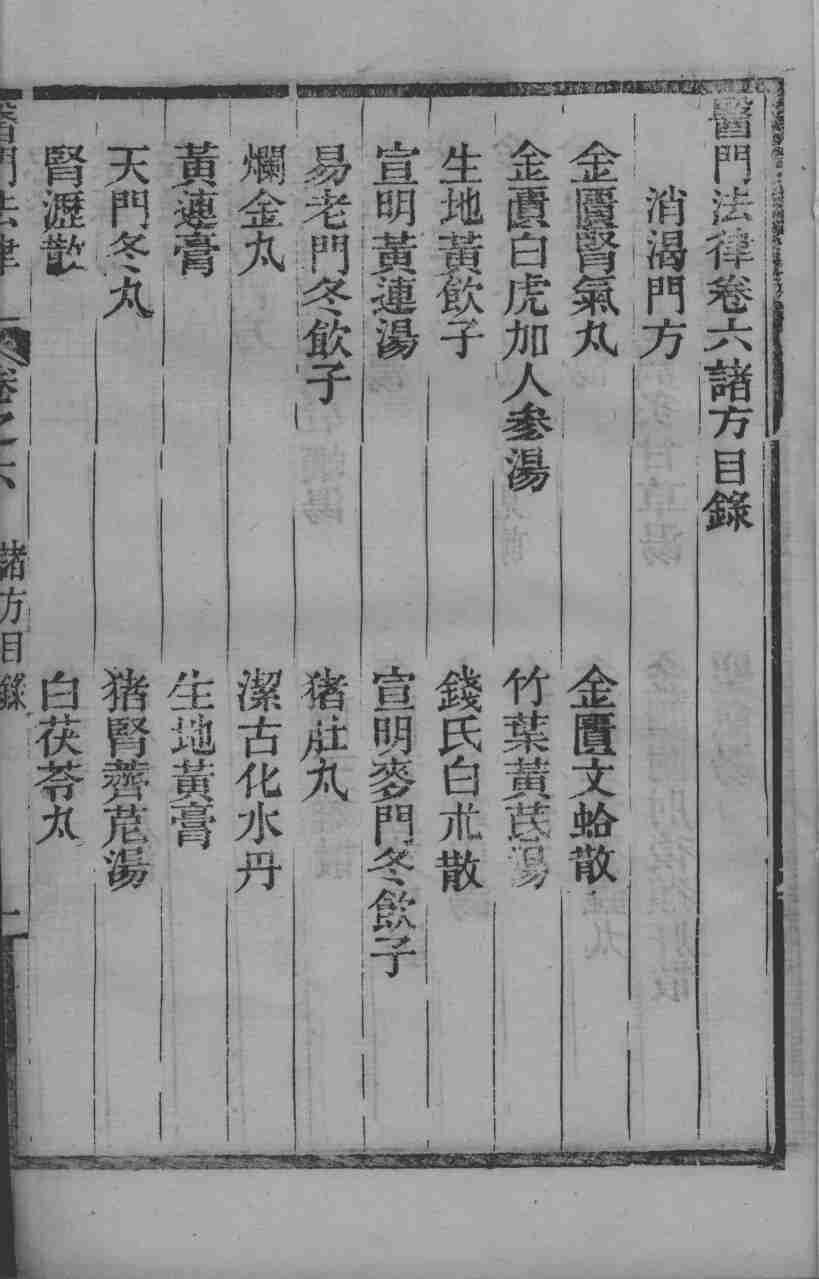 醫門法律卷六諸方目錄
消渴門方
金匱腎氣丸
金匱文蛤散
金匱白虎加人參湯
竹葉黃芪湯
生地黃飲子
錢氏白朮散
宣明黃連湯
宣明麥門冬飲子
易老門冬飲子
猪肚丸
爛金丸
潔古化水丹
黃連膏
生地黃膏
天門冬丸
猪腎薺苨湯
腎瀝散
白茯苓丸
醫門法律
卷之六
諸方目錄
一